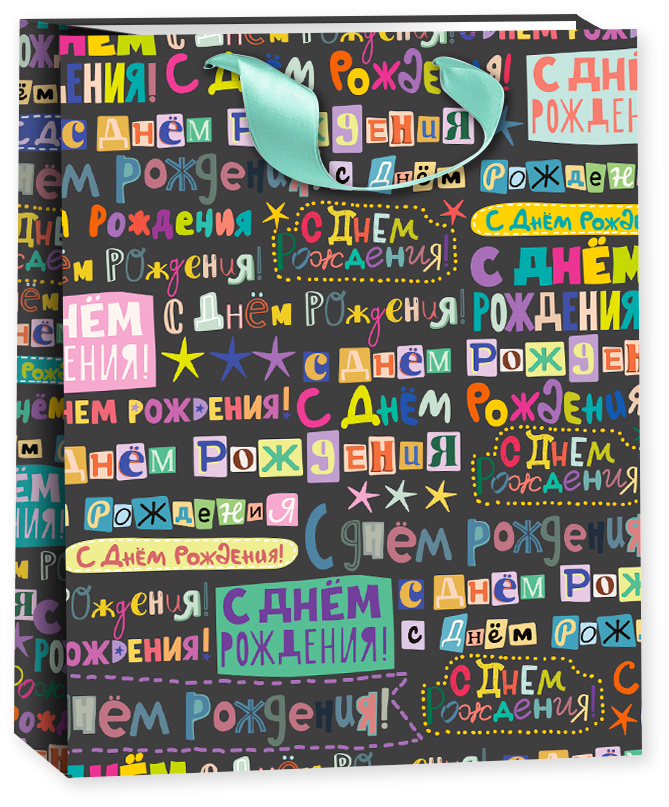 НЁМ РОЖДЕНИЯ! С ДНЁМ РОЖДЕНИЯ! С ДНЁМ РОЖДЕН
С ДНЁМ РОЖДЕНИЯ
НЁМ РОЖДЕНИЯ! С ДНЁМ РОЖДЕНИ
РОЖДЕНИЯ С ДНЁМ РОЖДЕНИЯ! С ДНЁМ РОЖДЕ
ЁМ РОЖДЕНИЯ! С ДНЁМ РОЖДЕНИЯ
НЁМ РОЖДЕНИЯ! С ДНЁМ РОЖДЕНИЯ!
С ДНЁМ РОЖДЕН
НЕМ РОЖДЕНИЯ! С ДНЁМ РОЖДЕНИЯ
ДНЁМ РОЖДЕНИЯ С ДНЁМ РОЖДЕНИЯ!
РОЖДЕНИЯ С ДНЁМ РОЖДЕНИЯ
С ДНЁМ РОЖДЕНИЯ!
РОЖДЕНИЯ! С ДНЁМ РОЖДЕНИЯ! С ДНЁМ РОЖ
РОЖДЕНИЯ! С ДНЁМ РОЖ
НЁМ РОЖДЕНИЯ! С ДНЁМ РОЖДЕНИЯ!